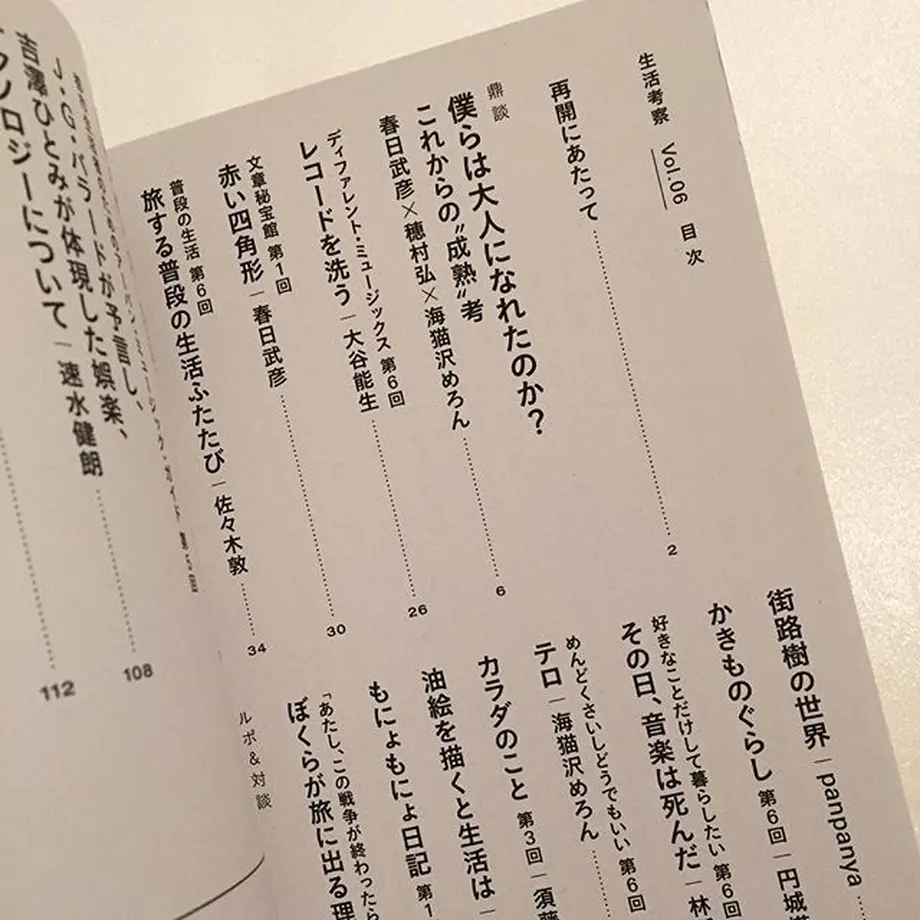 生活考察 Vol.06 目次
再開にあたって 2
鼎談
僕らは大人になれたのか?
これからの“成熟”考
春日武彦×穂村弘×海猫沢めろん 6
ディファレント・ミュージックス 第6回
レコードを洗う|大谷能生 26
文章秘宝館 第1回
赤い四角形|春日武彦 30
普段の生活 第6回
旅する普段の生活ふたたび|佐々木敦 34
街路樹の世界|panpanya
かきものぐらし 第6回|円城
好きなことだけして暮らしたい 第6回
その日、音楽は死んだ|林
めんどくさいしどうでもいい 第6回
テロ|海猫沢めろん
カラダのこと 第3回|須藤
油絵を描くと生活は|
もにょもにょ日記 第1
「あたし、この戦争が終わったら
ぼくらが旅に出る理
ルポ&対談
J・G・バラードが予言し、
吉澤ひとみが体現した娯楽、
ノロジーについて|速水健朗
108
112